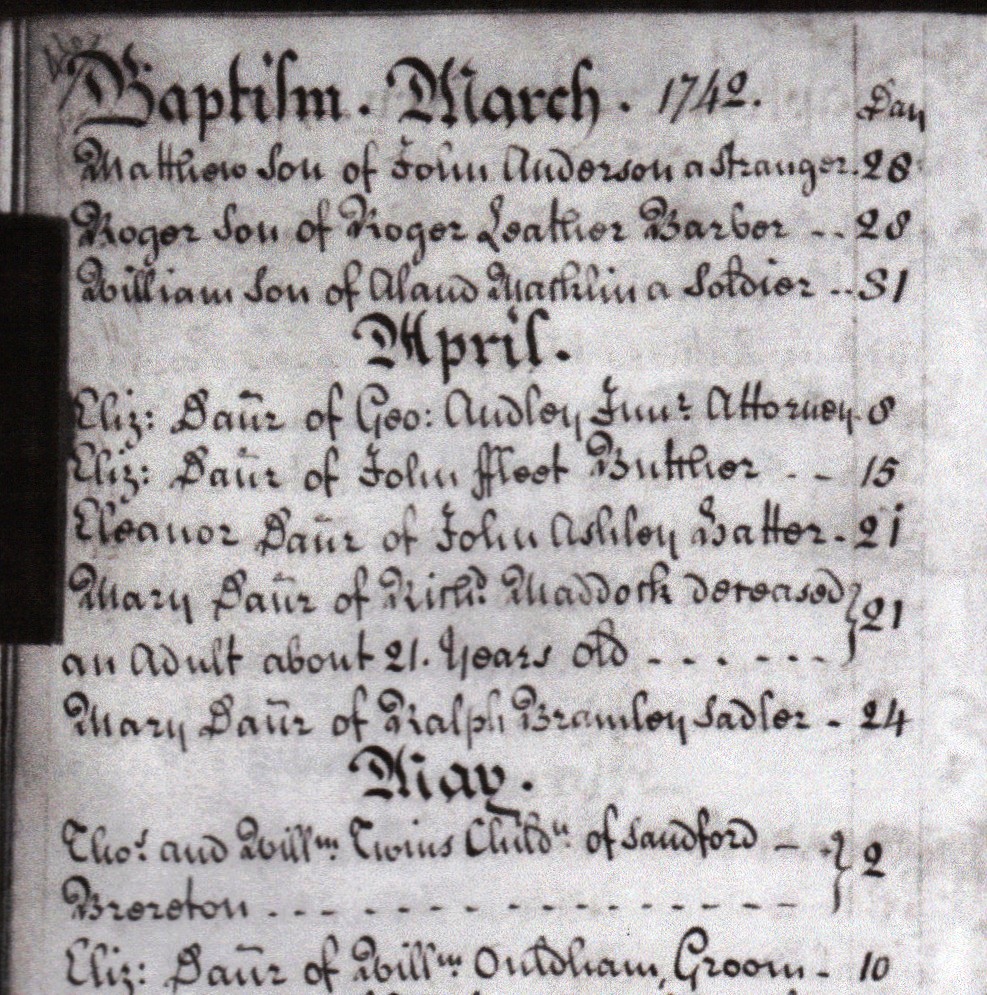 Baptism. March. 1742. Day
Matthew Son of John Anderson a Stranger. 28
Roger Son of Roger Leather Barber - - 28
William Son of Aland Machlin a Soldier - - 31
April.
Eliz: Daũr of Geo: Audley Junr. Attorney. 8
Eliz: Daũr of John ffleet Butcher - - 15
Eleanor Daũr of John Ashley Hatter - 21
Mary Daũr of Richd. Maddock deceased } 21
an Adult about 21. Years old - - - - - -
Mary Daũr of Ralph Bramley Sadler - 24
May.
Thos. and Willm. Twins Childn of Sandford - - } 2
Brereton - - - - - - - - - - - - - - - -
Eliz: Daũr of Willm. Ouldham, Groom - 10